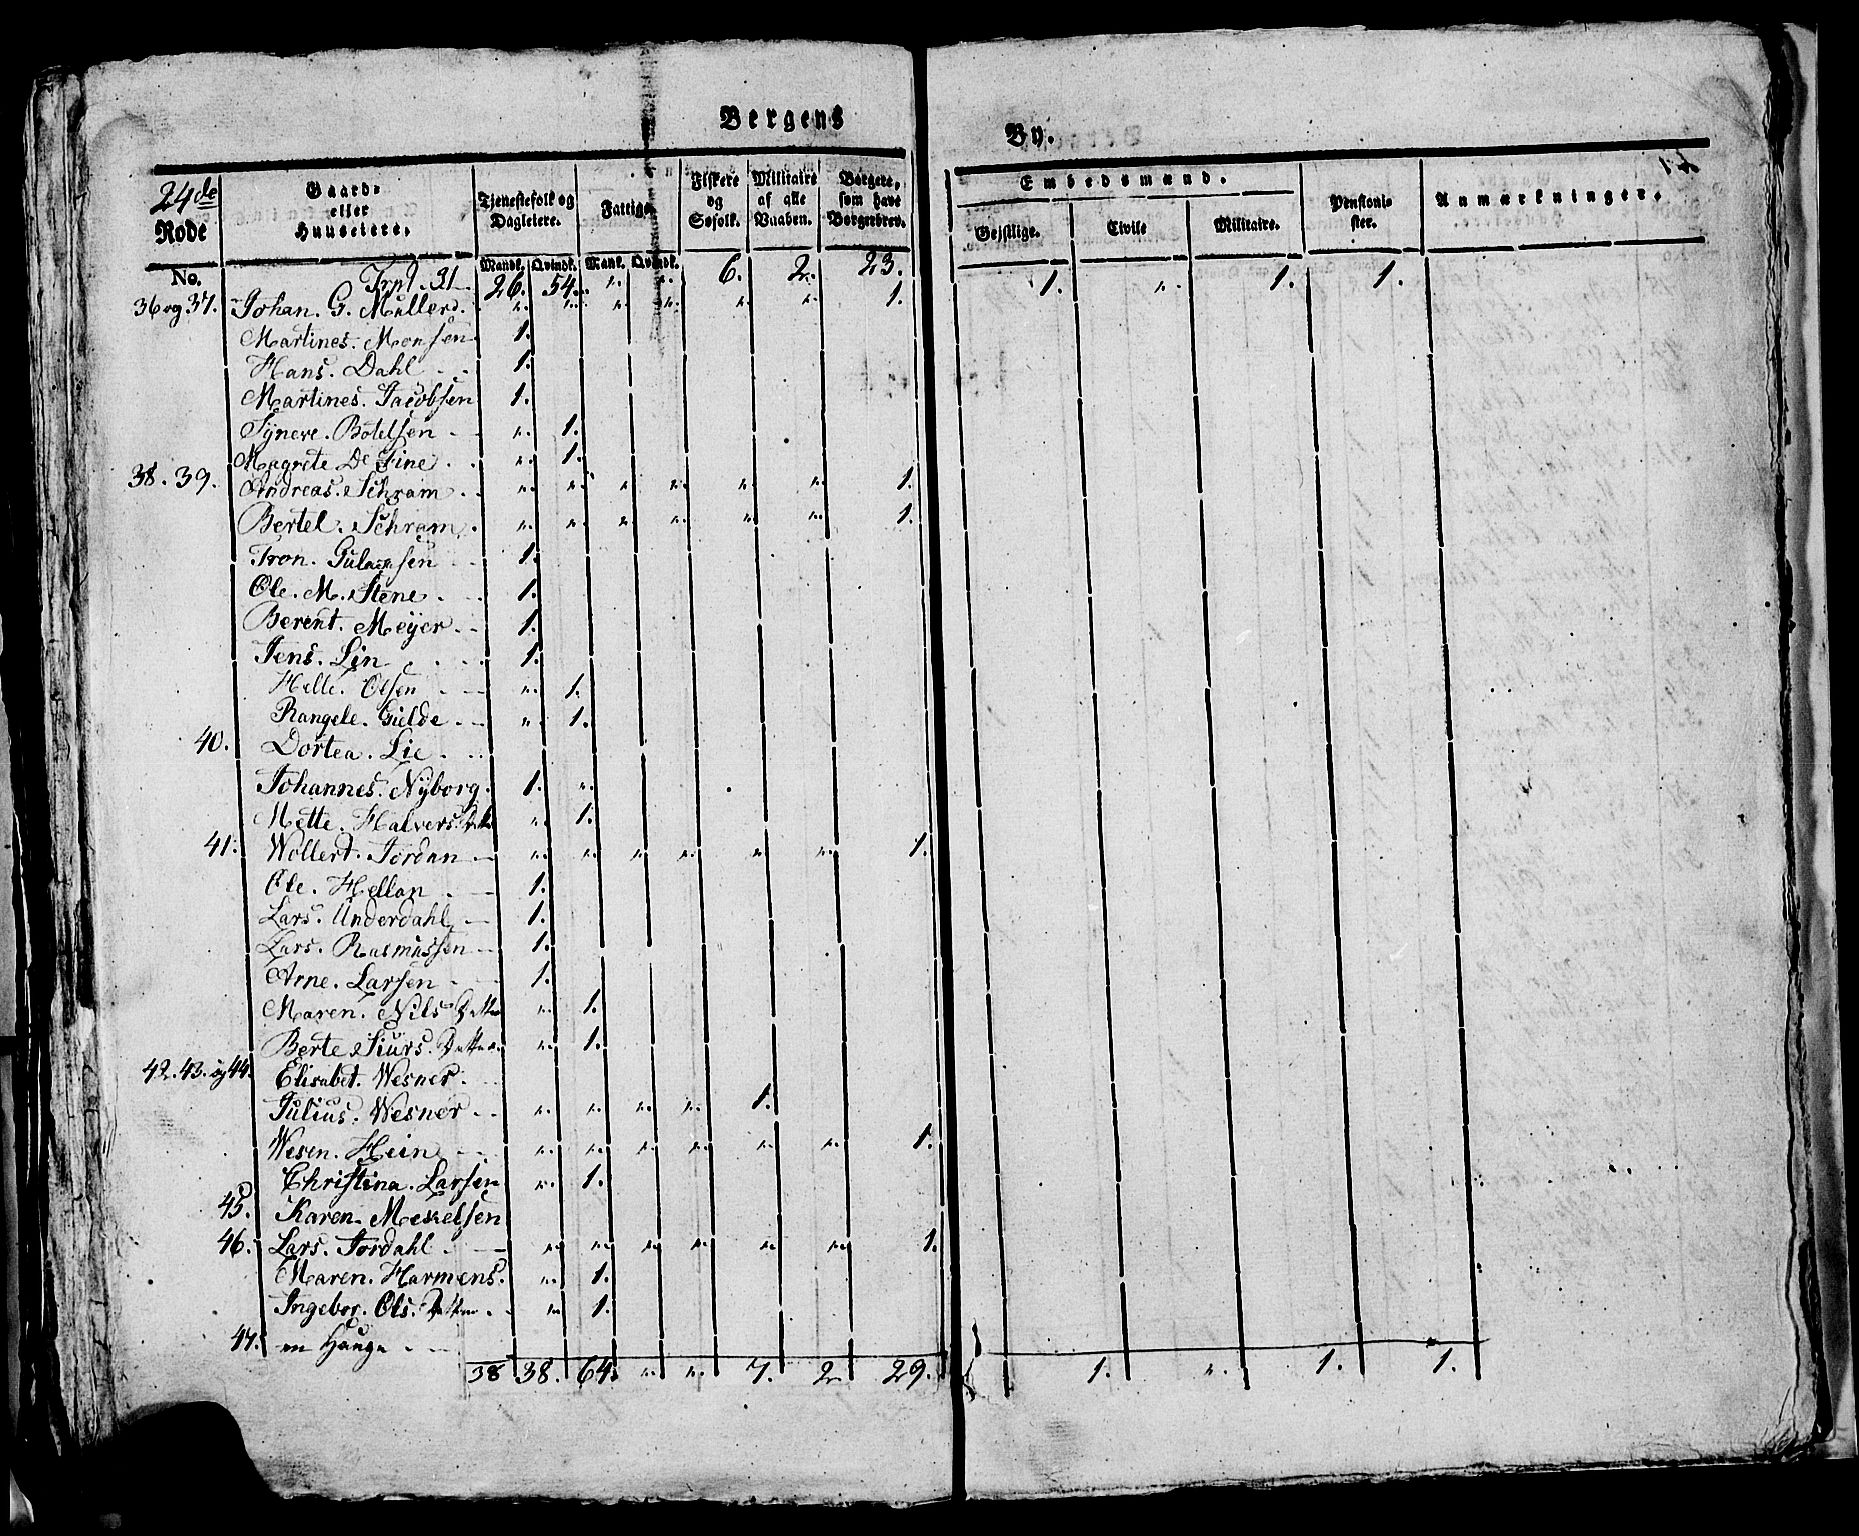 Bergens By.
24de Rode
Gaard- eller Huuseiere.
Tjenestefolk og Dagleiere.
Fattige.
Fiskere og Søfolk.
Militaire af alle Vaaben.
Borgere, som have Borgerbrev.
Embedsmænd.
Geistlige.
Civile
Militaire.
Pensionister.
Anmærkninger.
No.
Mandk. Qvindk. Mank. Qvindk.
Trpt. 31 26. 54. " " 6. 2. 23. 1. " 1. 1.
36 og 37. Johan. G. Müller. " " " " " " 1.
Martines. Monsen 1.
Hans. Dahl 1.
Martines. Jacobsen 1.
Synere. Botelsen " 1.
Magrete De Fine " 1.
38. 39. Andreas. Schram " " " " " " 1.
Bertel. Schram " " " " " " 1.
Tron. 1.
Ole. M. Stene 1.
Berent. Meyer 1.
Jens. Lin 1.
Helle. Olsen " 1.
Rangele. Gielde " 1.
40. Dortea. Lie
Johannes. Nyborg. 1. "
Mette. Halvers. " 1.
41. Wollert. Jordan " " " " " " 1.
Ole. Hellan 1.
Lars. Underdahl 1.
Lars. Rasmussen 1.
Arne. Larsen 1.
Maren. Nils Datter " 1.
Berte Siurs. Datter " 1.
42. 43. og 44. Elisabet. Wesner.
Julius. Wesner " " " " 1.
Wesen. Hein " " " " " " 1.
Christina. Larsen " 1.
45. Karen. Mekelsen
46. Lars. Jordahl " " " " " " 1.
Maren. Harmens. " 1.
Ingebor. Ols. Datter " 1.
47. en Hauge
38 38. 64. " " 7. 2 29. 1. " 1. 1.